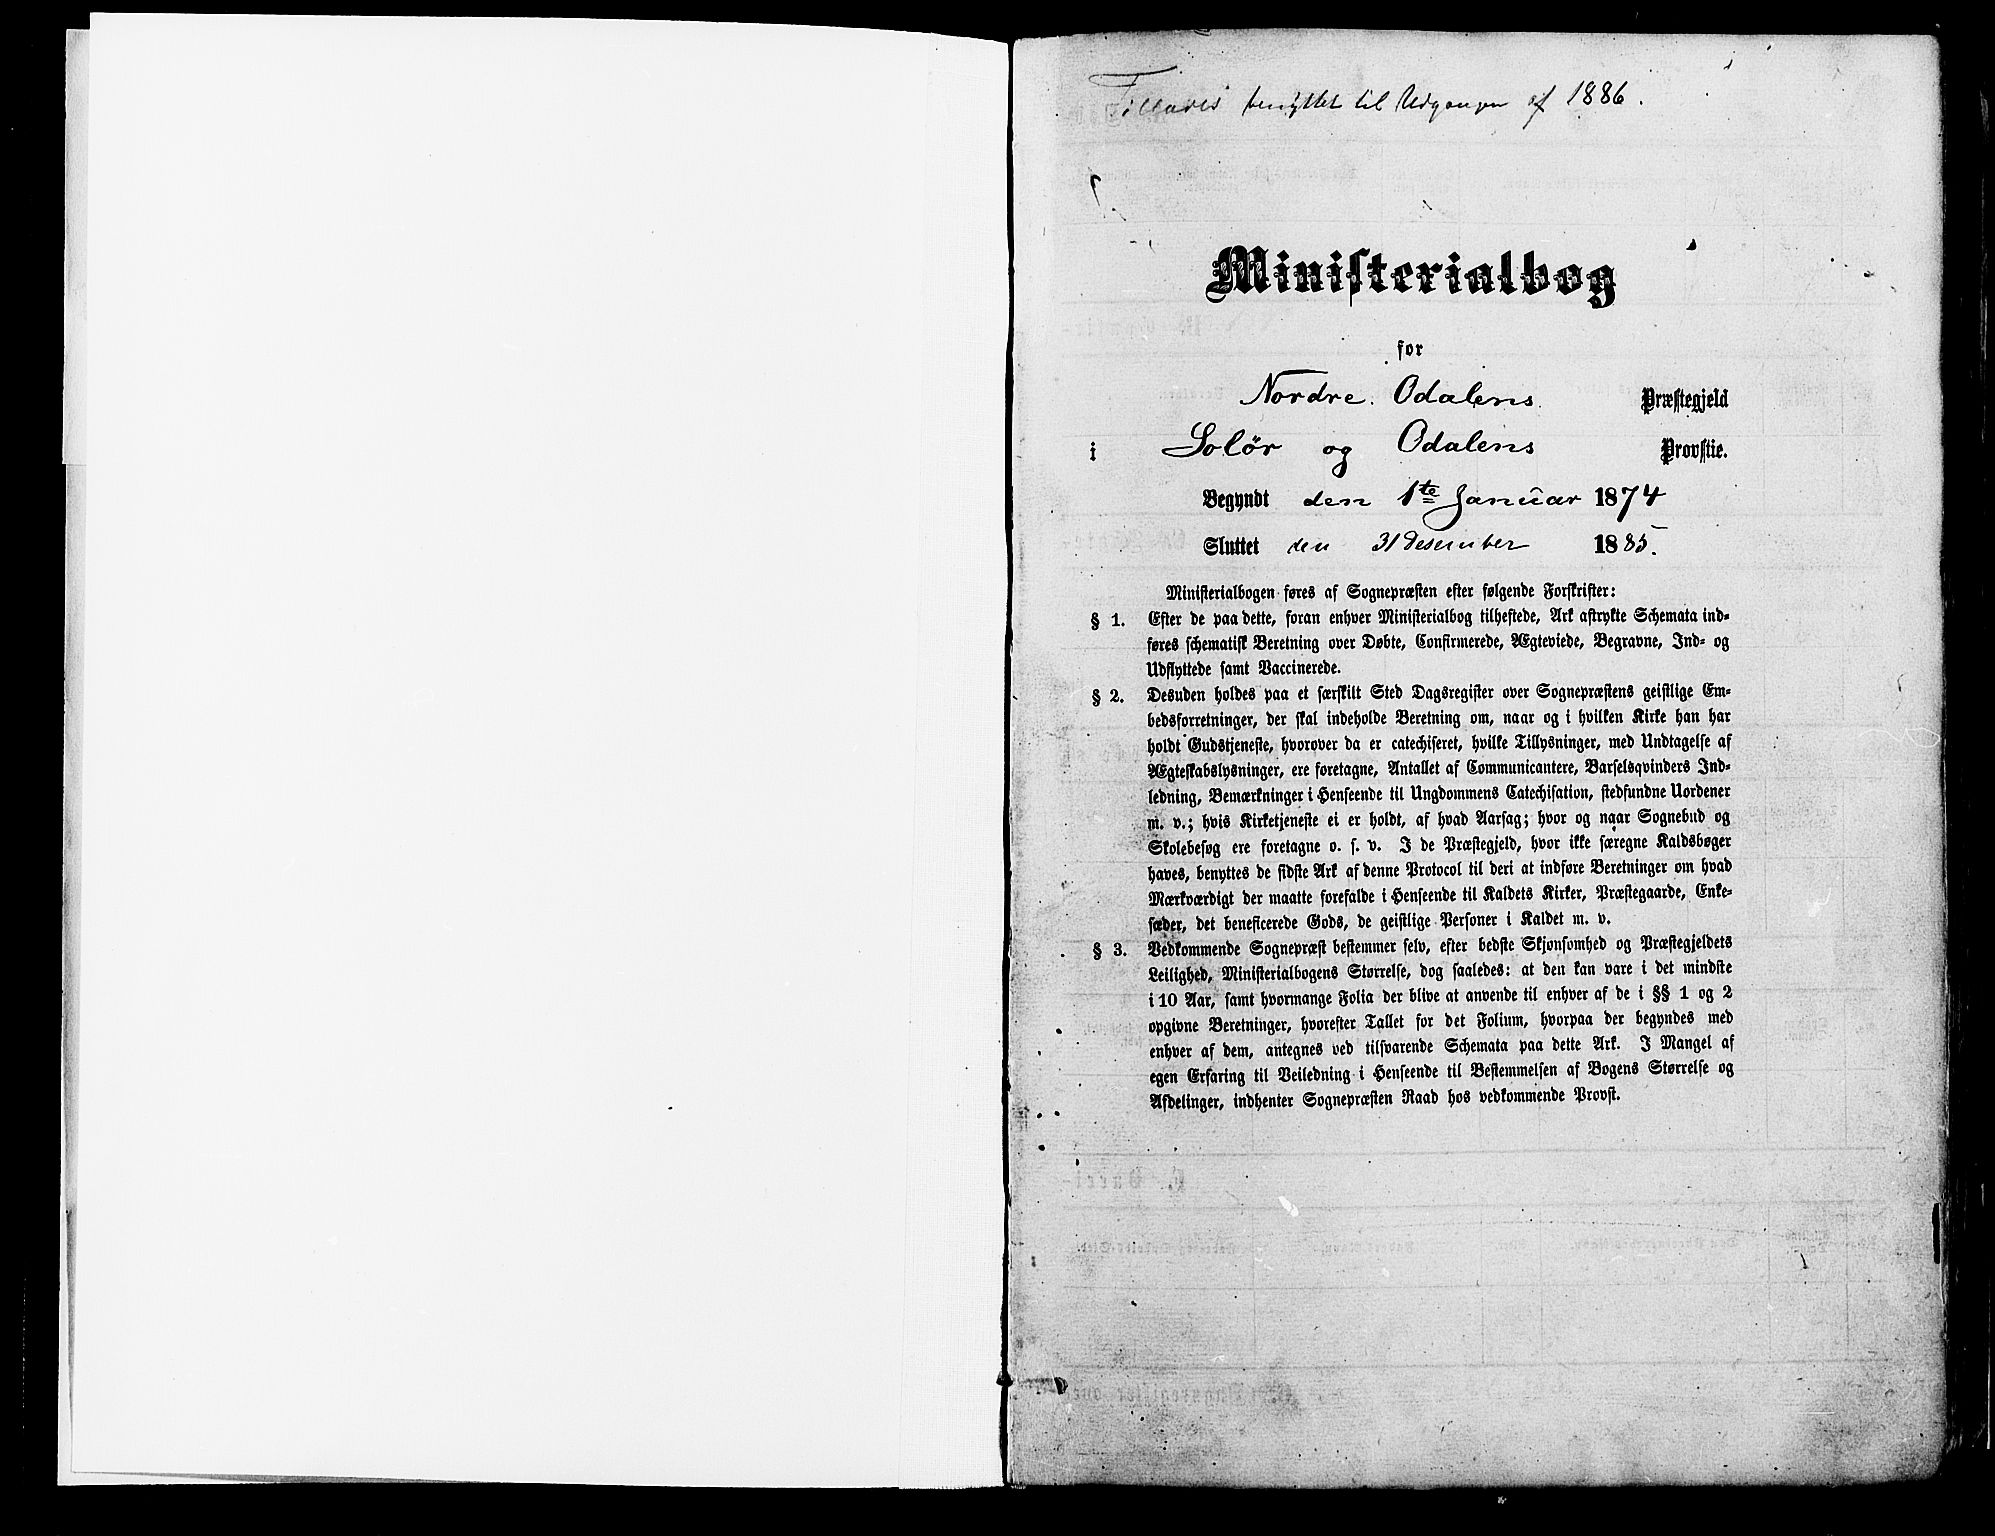 benyttet til Udgangen af 1886.
Ministerialbog
for
Nordre Odalens Præstegjeld
i Solør og Odalens Provstie.
Begyndt den 1te Januar 1874
Sluttet den 31 Desember 1885.
Ministerialbogen føres af Sognepræsten efter følgende Forskrifter:
§ 1. Efter de paa dette, foran enhver Ministerialbog tilheftede, Ark aftrykte Schemata ind-
føres schematisk Beretning over Døbte, Confirmerede, Ægteviede, Begravne, Ind- og
Udflyttede samt Vaccinerede.
§ 2. Desuden holdes paa et særskilt Sted Dagsregister over Sognepræstens geistlige Em-
bedsforretninger, der skal indeholde Beretning om, naar og i hvilken Kirke han har
holdt Gudstjeneste, hvorover da er catechiseret, hvilke Tillysninger, med Undtagelse af
Ægteskabslysninger, ere foretagne, Antallet af Communicantere, Barselsqvinders Ind-
ledning, Bemærkninger i Henseende til Ungdommens Catechisation, stedfundne Uordener
m. v.; hvis Kirketjeneste ei er holdt, af hvad Aarsag; hvor og naar Sognebud og
Skolebesøg ere foretagne o. s. v. I de Præstegjeld, hvor ikke særegne Kaldsbøger
haves, benyttes de sidste Ark af denne Protocol til deri at indføre Beretninger om hvad
Mærkværdigt der maatte forefalde i Henseende til Kaldets Kirker, Præstegaarde, Enke-
sæder, det beneficerede Gods, de geistlige Personer i Kaldet m. v.
§ 3. Vedkommende Sognepræst bestemmer selv, efter bedste Skjønsomhed og Præstegjeldets
Leilighed, Ministerialbogens Størrelse, dog saaledes: at den kan vare i det mindste
i 10 Aar, samt hvormange Folia der blive at anvende til enhver af de i §§ 1 og 2
opgivne Beretninger, hvorefter Tallet for det Folium, hvorpaa der begyndes med
enhver af dem, antegnes ved tilsvarende Schemata paa dette Ark. I Mangel af
egen Erfaring til Veiledning i Henseende til Bestemmelsen af Bogens Størrelse og
Afdelinger, indhenter Sognepræsten Raad hos vedkommende Provst.